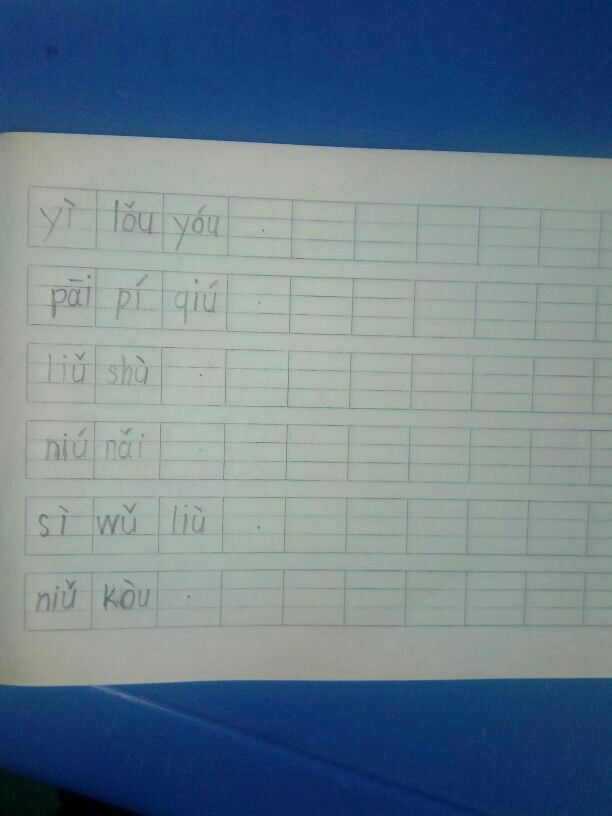 yì lǒu yóu
pāi pí qiú
liǔ shù
niú nǎi
sì wǔ liù
niǔ kòu